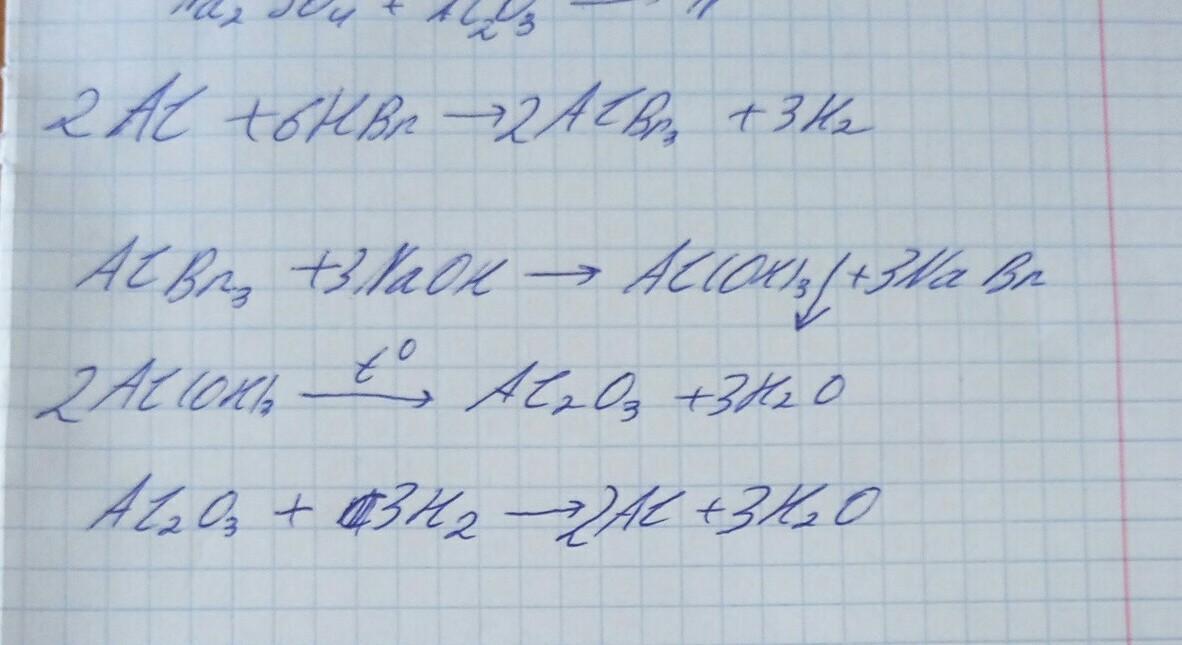 SO₄ + Al₂O₃ →
2Al + 6HBr → 2AlBr₃ + 3H₂
AlBr₃ + 3NaOH → Al(OH)₃↓ + 3NaBr
2Al(OH)₃ t⁰→ Al₂O₃ + 3H₂O
Al₂O₃ + 3H₂ → 2Al + 3H₂O